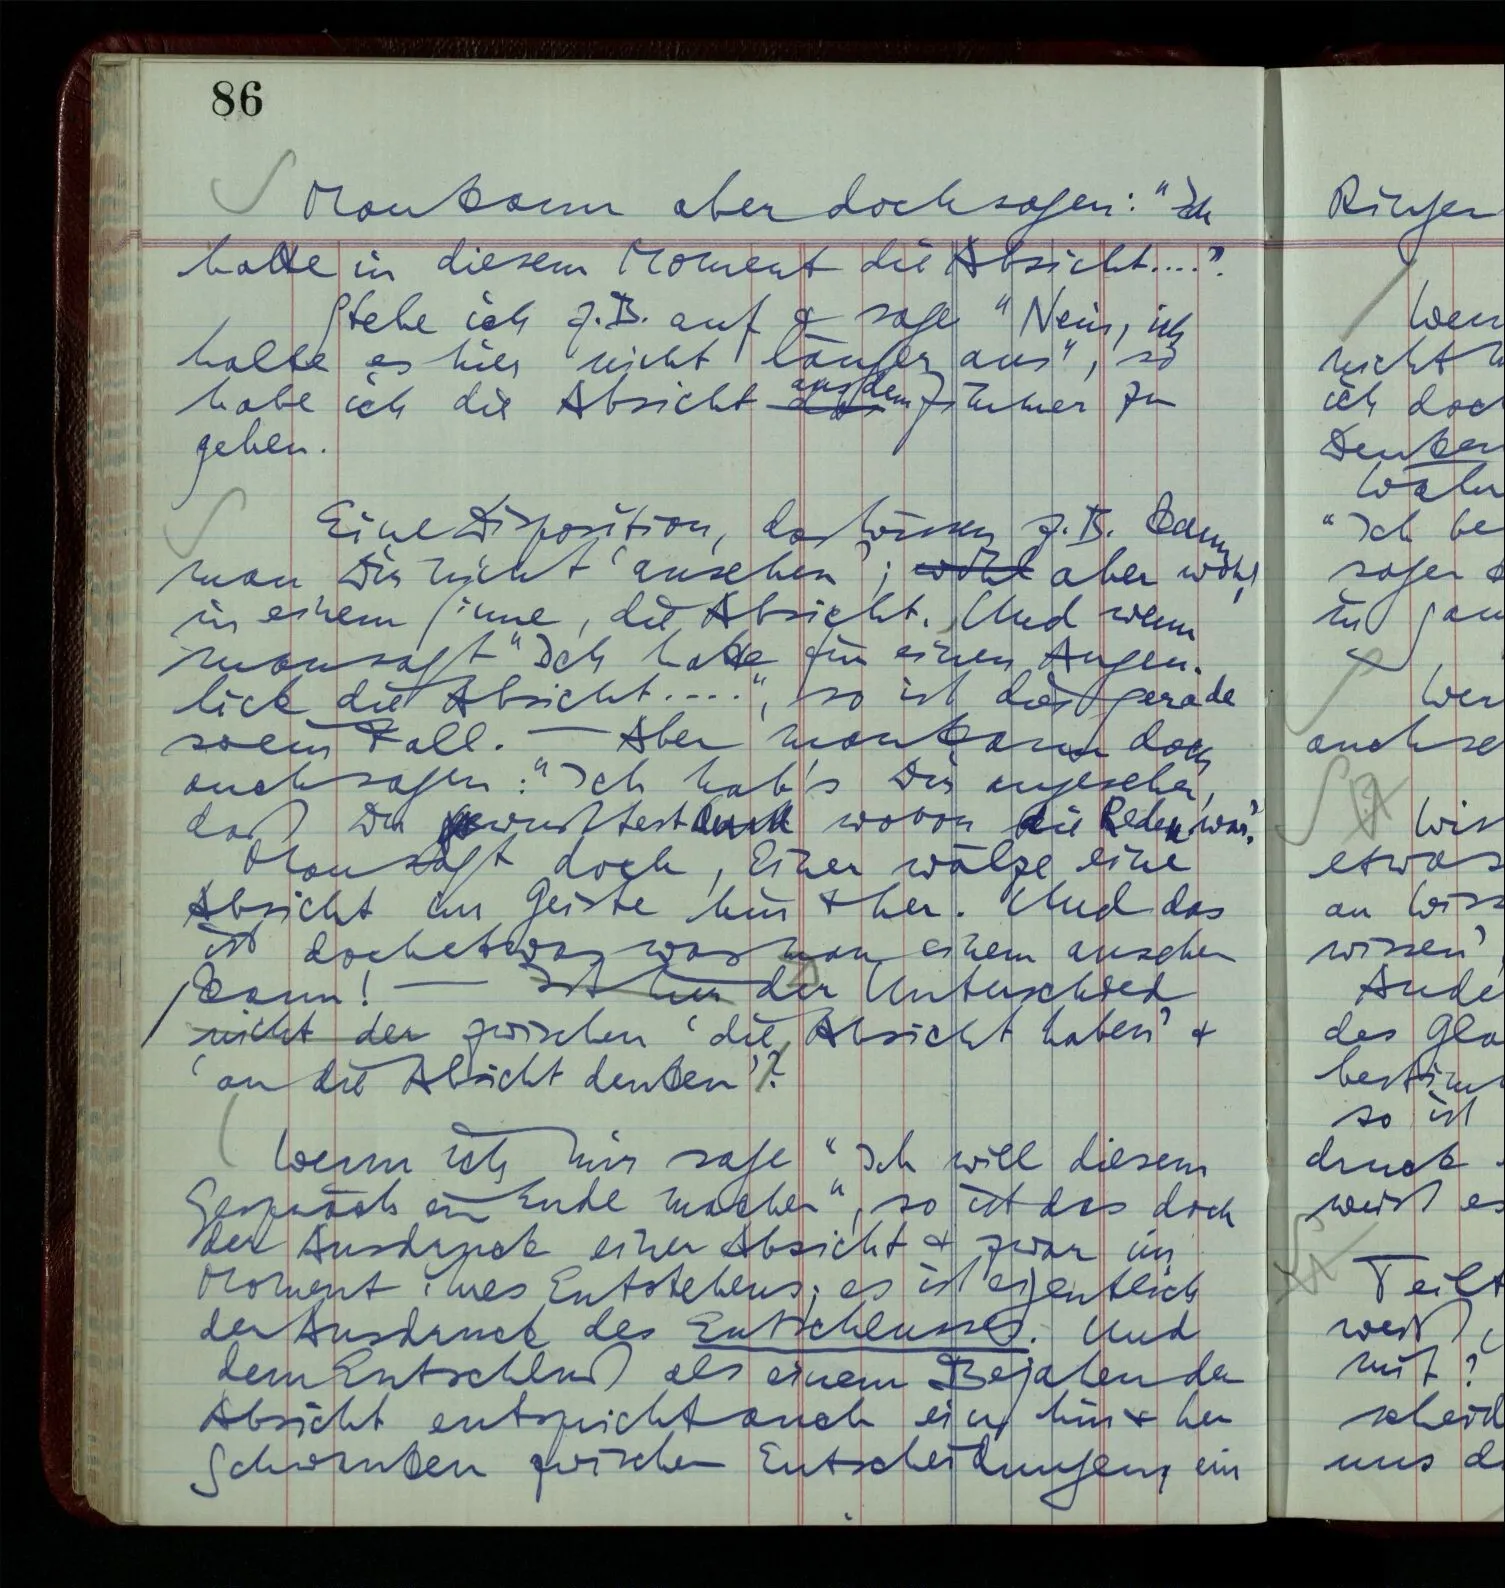 86
Man kann aber doch sagen: "Ich
hatte in diesem Moment die Absicht....".
Stehe ich z.B. auf & sage "Nein, ich
halte es hier nicht länger aus", so
habe ich die Absicht aus dem Zimmer zu
gehen.
Eine Disposition, das Wissen z.B. kann
man Dir nicht 'ansehen'; wohl aber wohl,
in einem Sinne, die Absicht. Und wenn
man sagt "Ich hatte für einen Augen-
blick die Absicht....", so ist dies gerade
so ein Fall. — Aber man kann doch
auch sagen: "Ich hab's Dir angesehen,
daß Du wußtest wovon die Rede war".
Man sagt doch, Einer wälze eine
Absicht im Geiste hin & her. Und das
ist doch etwas was man einem ansehen
kann! — Ist hier der Unterschied
nicht der zwischen 'die Absicht haben' &
'an die Absicht denken'?
Wenn ich mir sage "Ich will diesem
Gespräch ein Ende machen", so ist das doch
der Ausdruck einer Absicht & zwar im
Moment ihres Entstehens; es ist eigentlich
der Ausdruck des Entschlusses. Und
dem Entschluß als einem Bejahen der
Absicht entspricht auch ein hin & her
Schwanken zwischen Entscheidungen, ein
nicht
ich doch
Denken
"Ich be
sagen
etwas
wissen'
des
so ist
druck
weiß es
Teilt
weiß,
mit?
uns d